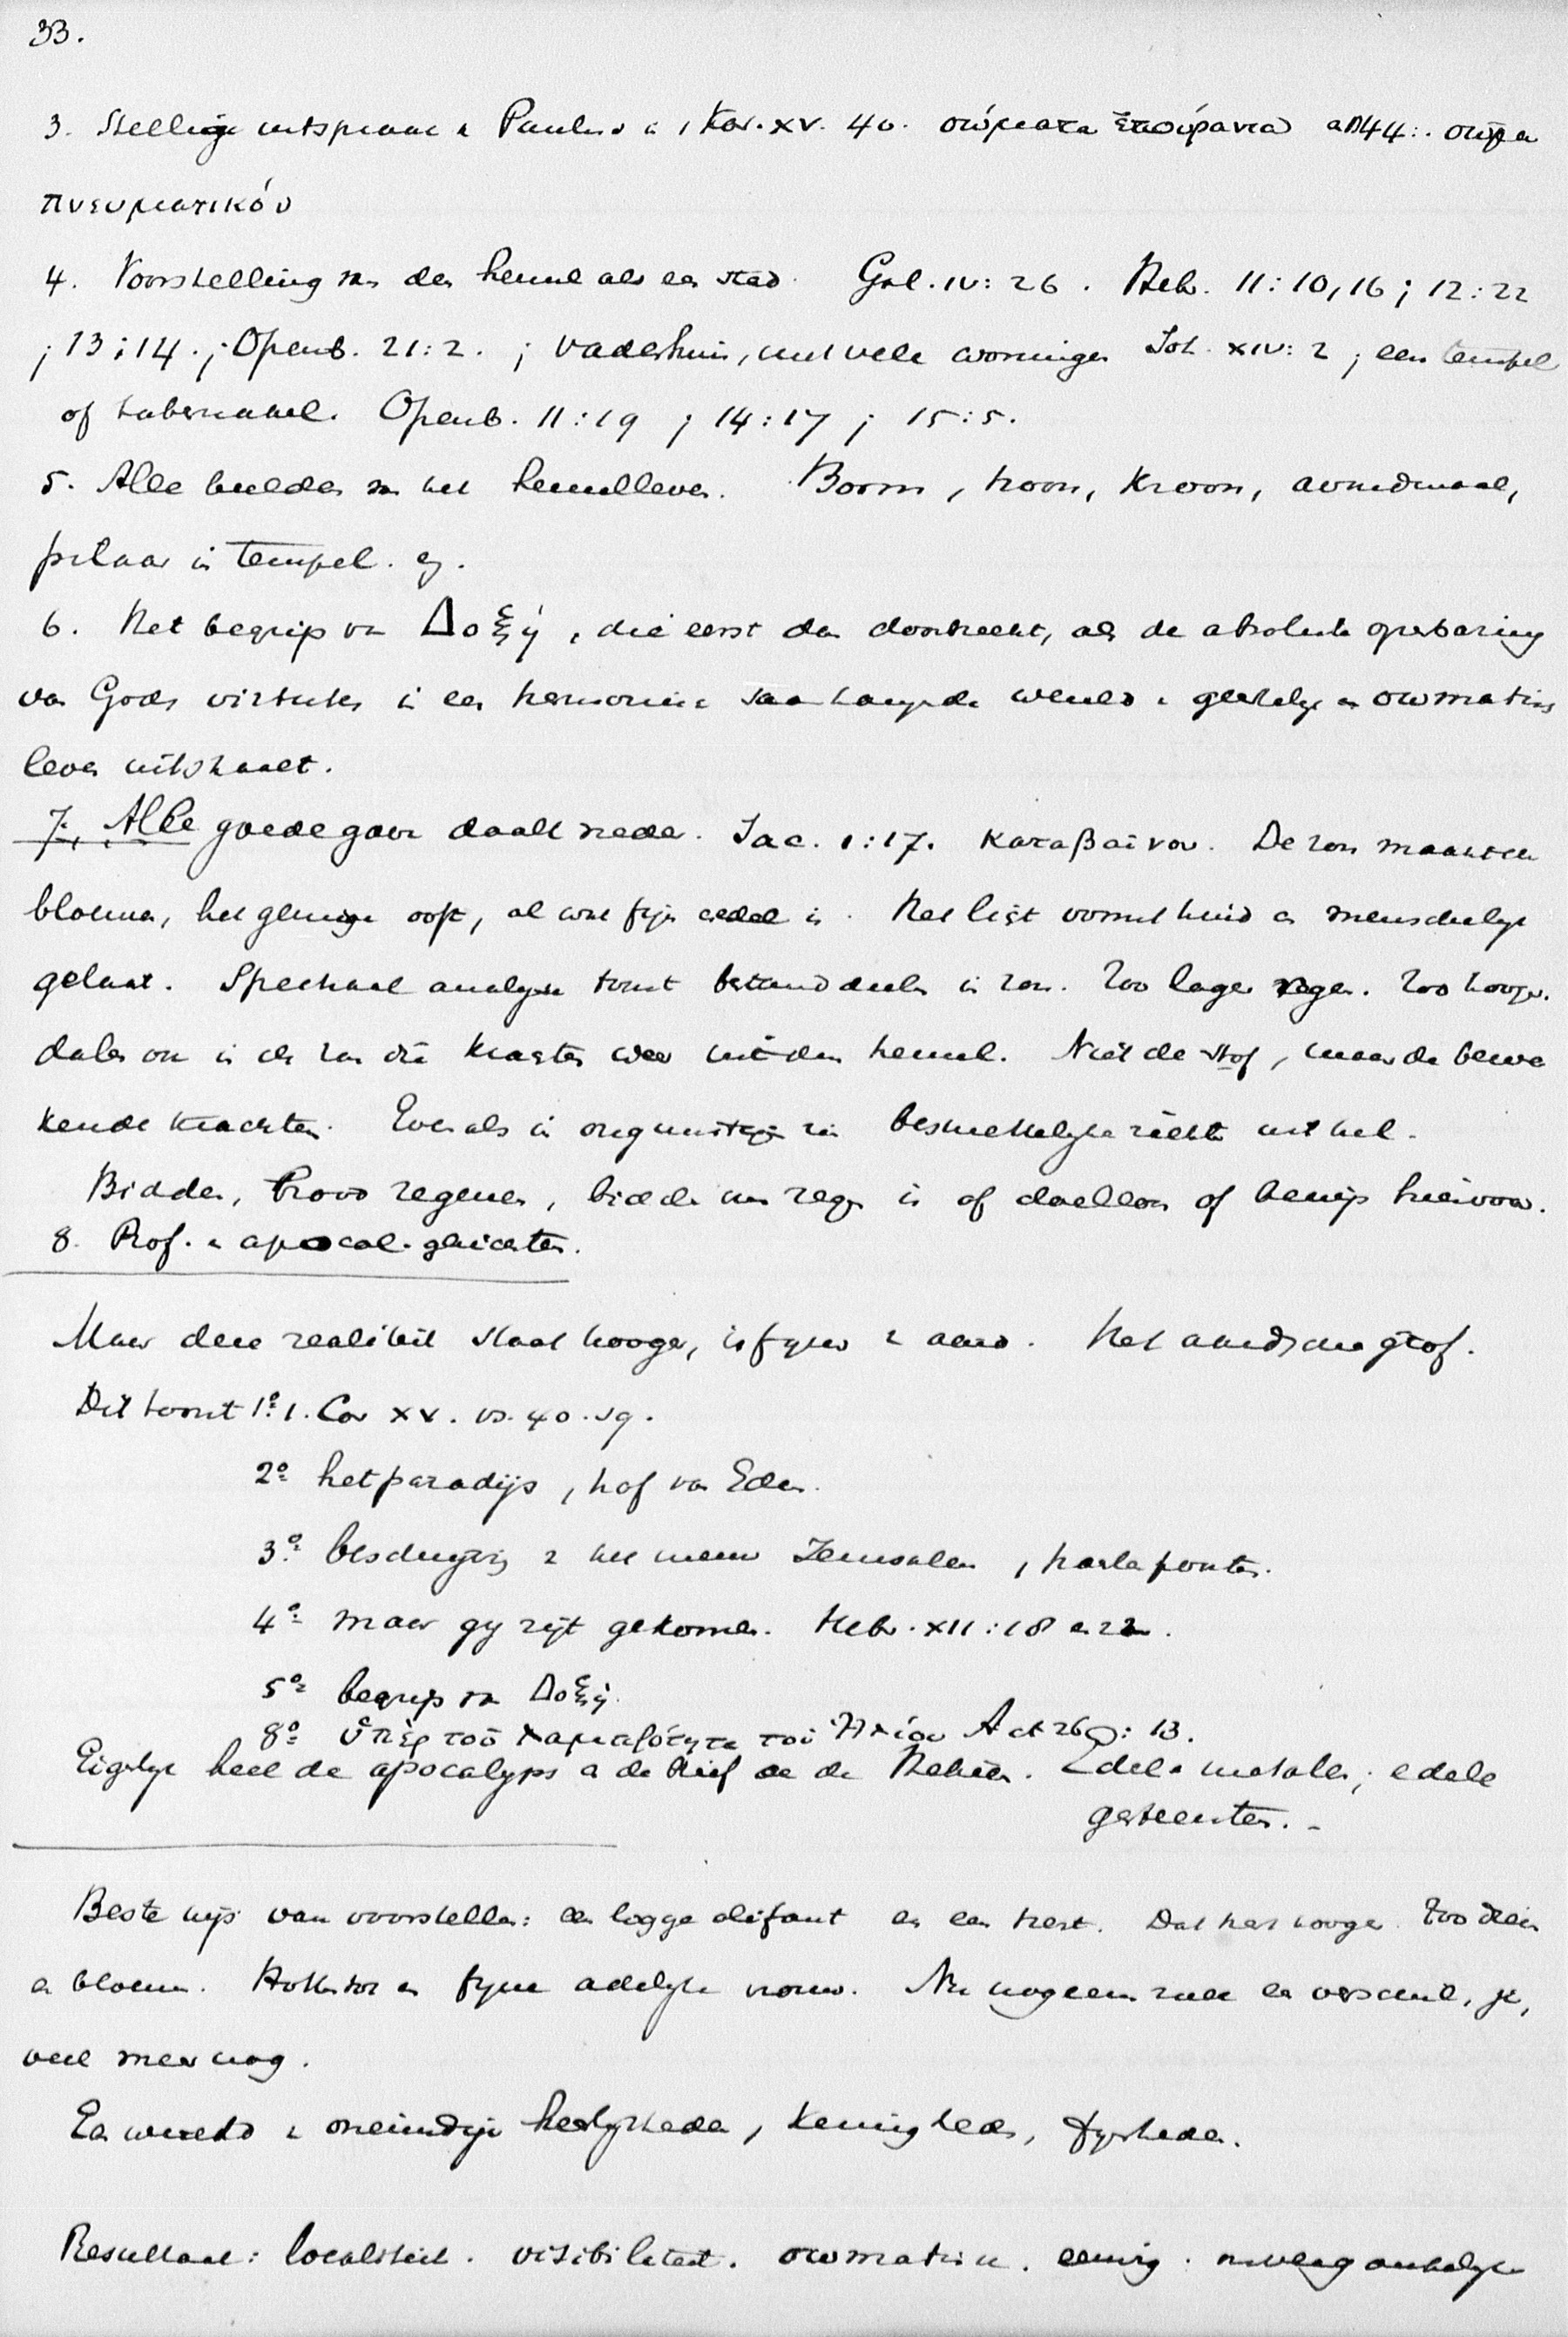 33.
3. Stellige uitspraak v Paulus in 1 Kor. XV. 40. σώματα ἐπουράνια 44: σῶμα
πνευματικόν
4. Voorstelling van den hemel als een stad. Gal. IV: 26. Heb. 11:10,16; 12:22
; 13:14.; Openb. 21:2. ; Vaderhuis, met vele woningen Joh. XIV: 2, een tempel
of tabernakel. Openb. 11:19 ; 14:17 ; 15:5.
5. Alle beelden van het hemelleven. Boom, troon, Kroon, avondmaal,
pilaar in tempel.
6. Het begrip van Δοξή, die eerst dan doorbreekt, als de absolute openbaring
van Gods virtutes in een harmonisch saamhangende wereld v geestelijk en σωmatisch
leven uitstraalt.
7. Alle goede gave daalt neder. Jac. 1:17. καταβαῖνον. De zon maakt de
bloemen, het geurige ooft, al wat fijn edel is. Het ligt vormt huid en menschelijk
gelaat. Spectraal analyse toont bestanddeelen in zon. Zoo lager regen. Zoo hooger.
dalen on in de zon die krachten weer uit den hemel. Niet de stof, maar de bewe
kende krachten. Evenals in besmettelijke ziekte uit hel.
Bidden, brood zegenen, bidden om regen is of dwelleon of bewijs hiervoor.
8. Prof. en apocal. gezichten.
Maar deze realiteit staat hooger, is fijner v aard. Het aardsche grof.
Dit toont 1º 1. Cor XV. vs. 40. sq.
2º het paradijs, hof van Eden.
3º beschrijving v het nieuw Jeruzalem, paarlen poorten.
4º maar gij zijt gekomen. Hebr. XII:18 en 22.
5º begrip van Δοξή.
8º ὑπὲρ τοῦ λαμπρότητα τοῦ Ἡλίου Act 26: 13.
Eigelijk heel de apocalyps en de brief aan de Hebreën. Edele metalen; edele
gesteenten. -
Beste wijs van voorstellen: een logge olifant en een hert. Dat hert hooger. Zoo
en bloem. en fijne adelijke vrouw. Nu nog eens zulk een verschil, ja,
veel meer nog.
Een wereld v oneindige heerlijkheden, keurigheden, fijnheden.
Resultaat: localiteit. visibiliteit. σωmatisch. eeuwig. onvergankelijk